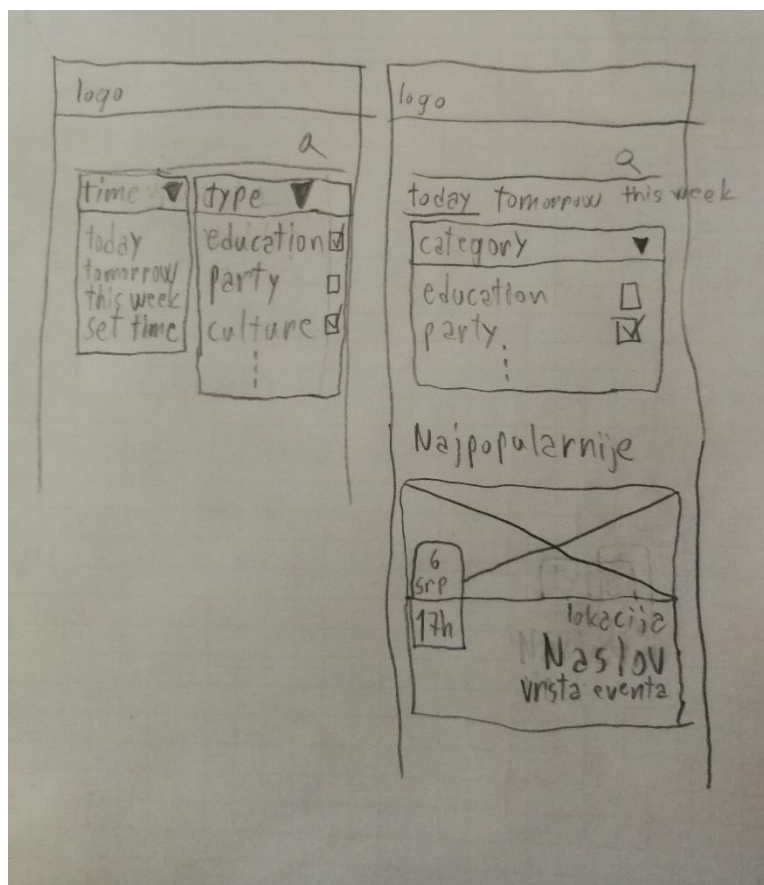 logo
time
type
today
tomorrow
this week
set time
education
party
culture
logo
today tomorrow this week
category
education
party
Najpopularnije
6
srp
17h
lokacija
Naslov
vrsta eventa